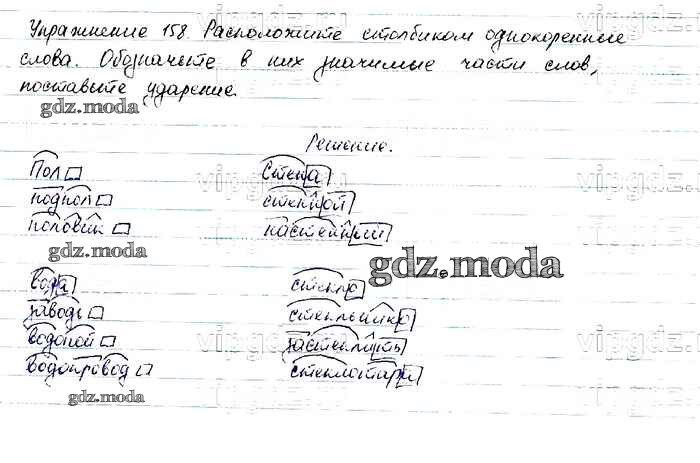 Упражнение 158. Расположите столбиком однокоренные
слова. Обозначьте в них значимые части слов,
поставьте ударение.
gdz.moda
Решение.
Пол Стена
подпол стенной
половик настенный
gdz.moda
gdz.moda
вода стекло
заводь
водопой застеклить
водопровод
gdz.moda
vipgdz.ru